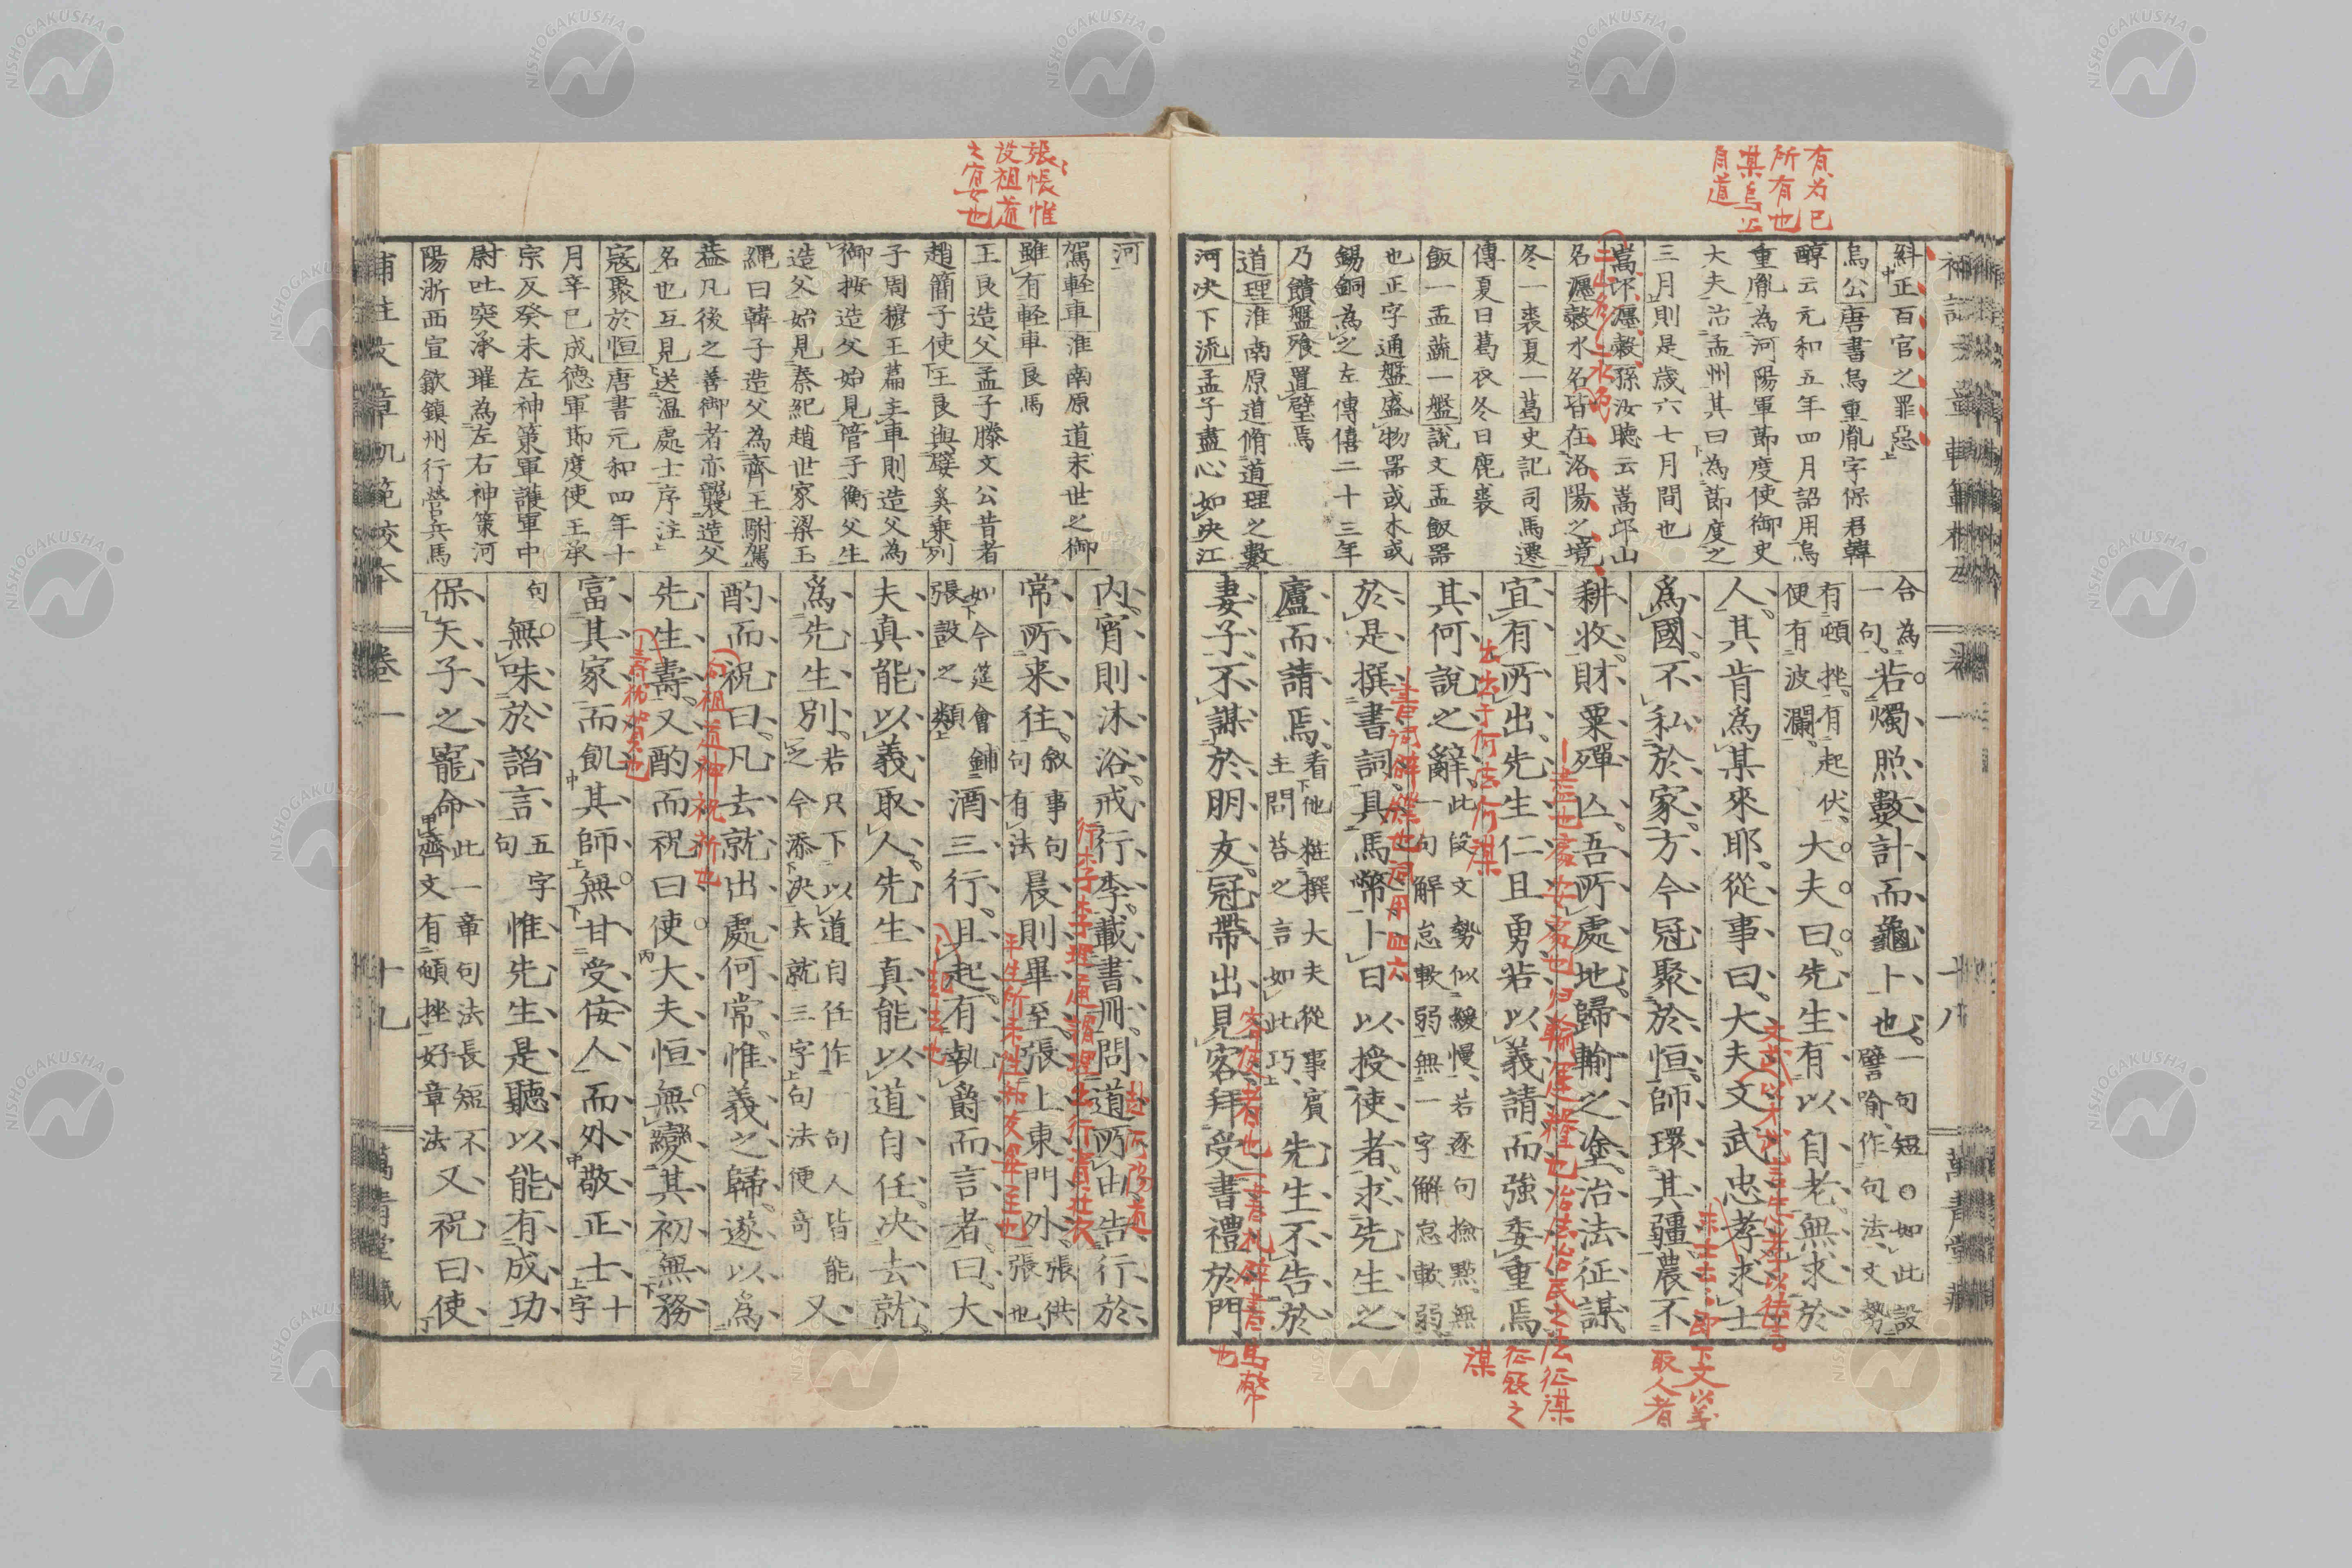 有為已
所有也
某烏公
自道
糾正百官之罪惡
烏公唐書烏重胤字保君韓
醇云元和五年四月詔用烏
重胤為河陽軍節度使御史
大夫治孟州其曰為節度之
三月則是歲六七月間也
嵩邙瀍穀孫汝聽云嵩邙山
名瀍穀水名皆在洛陽之境
冬一裘夏一葛史記司馬遷
傳夏日葛衣冬日鹿裘
飯一盂蔬一盤說文盂飯器
也正字通盤盛物器或木或
錫銅為之左傳僖二十三年
乃饋盤飱置璧焉
道理淮南原道脩道理之數
河決下流孟子盡心如決江
三山名
二水名
合為一句
若燭照數計而龜卜也
一句短○如此設譬喻作句法文勢
有頓挫有起伏
便有波瀾
大夫曰先生有以自老無求於
人其肯為某來耶從事曰大夫文武忠孝求士
為國不私於家方今寇聚於恒師環其疆農不
耕收財粟殫亾吾所處地歸輸之塗治法征謀
宜有所出先生仁且勇若以義請而強委重焉
其何說之辭
此段文勢似緩慢若逐句撿點無
一句解怠軟弱無一字解怠軟弱
於是撰書詞具馬幣卜日以授使者求先生之
廬而請焉
看他粧撰大夫從事賓
主問荅之言如此巧
先生不告於
妻子不謀於朋友冠帶出見客拜受書禮於門
取人者
書詞辭牒也詞用四六
萬青堂藏
張帳惟
設祖道
之宴也
河
駕輕車淮南原道末世之御
雖有輕車良馬
王良造父孟子滕文公昔者
趙簡子使王良與嬖奚乘列
子周穆王篇主車則造父為
御按造父始見管子衡父生
造父始見秦紀趙世家梁玉
繩曰韓子造父為齊王駙駕
蓋凡後之善御者亦襲造父
名也互見送溫處士序注
寇聚於恒唐書元和四年十
月辛巳成德軍節度使王承
宗反癸未左神策軍護軍中
尉吐突承璀為左右神策河
陽浙西宣歙鎮州行營兵馬
內宵則沐浴戒行李載書冊問道所由告行於
常所來往
叙事句
句有法
晨則畢至張上東門外
張供
張也
如今筵會鋪
張設之類
酒三行且起有執爵而言者曰大
夫真能以義取人先生真能以道自任決去就
為先生別
若只下以道自任作一句人皆能
之今添決去就三字句法便奇
又
酌而祝曰凡去就出處何常惟義之歸遂以為
先生壽又酌而祝曰使大夫恒無變其初無務
富其家而飢其師無甘受佞人而外敬正士
十字句
無味於諂言
五字句
惟先生是聽以能有成功
保天子之寵命
此一章句法長短不
齊文有頓挫好章法
又祝曰使
向祖道神祝祈也
補註文章軌範校本
卷一
十九
萬青堂藏